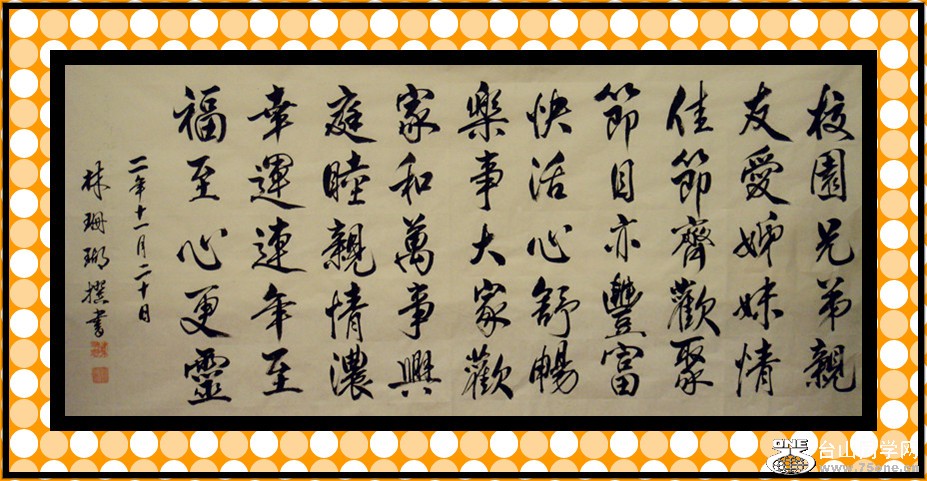 校園兄弟親
友愛姊妹情
佳節齊歡聚
節目亦豐富
快活心舒暢
樂事大家歡
家和萬事興
庭睦親情濃
幸運連年至
福至心更靈
二年十一月二十日
林珊瑚撰書
ONE
台山同学网
www.75one.cn